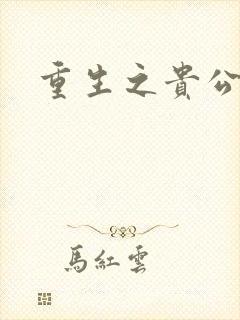 重生之貴公
馬紅雲